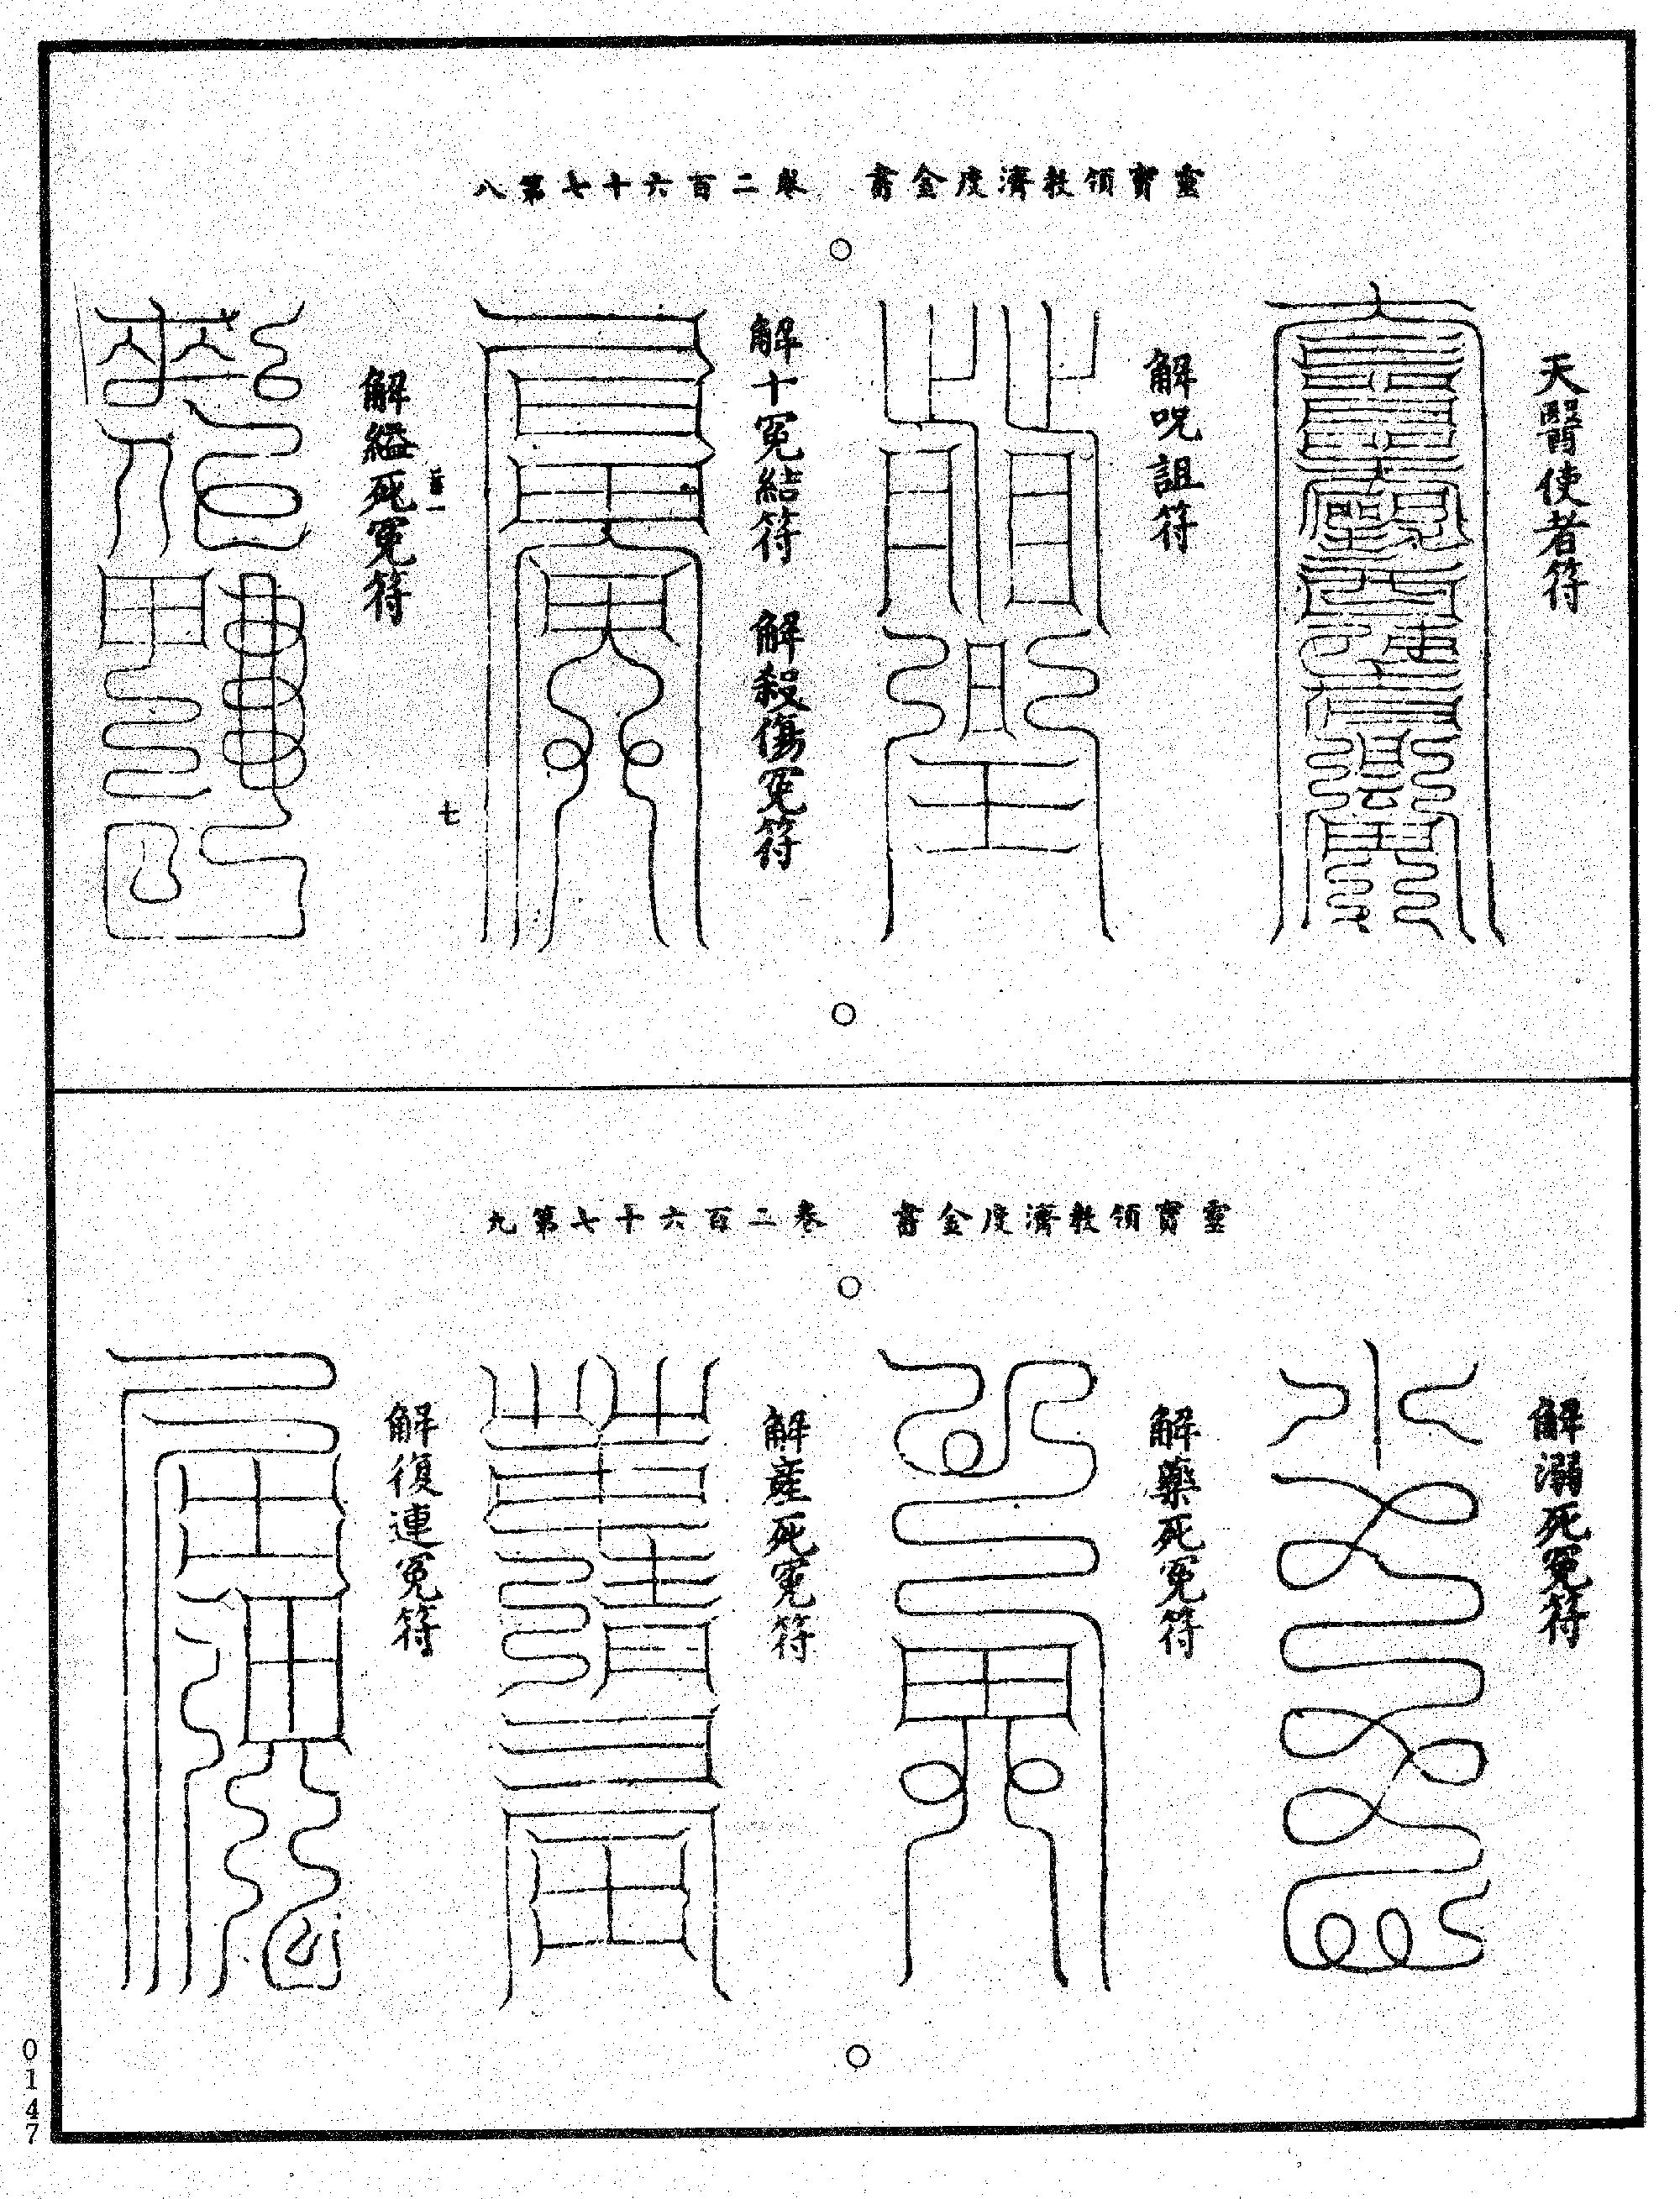 靈寶領教濟度金書　卷二百六十七第八
天醫使者符
解呪詛符
解十冤結符　解殺傷冤符
七
解縊死冤符
靈寶領教濟度金書　卷二百六十七第九
解溺死冤符
解藥死冤符
解產死冤符
解復連冤符
0147